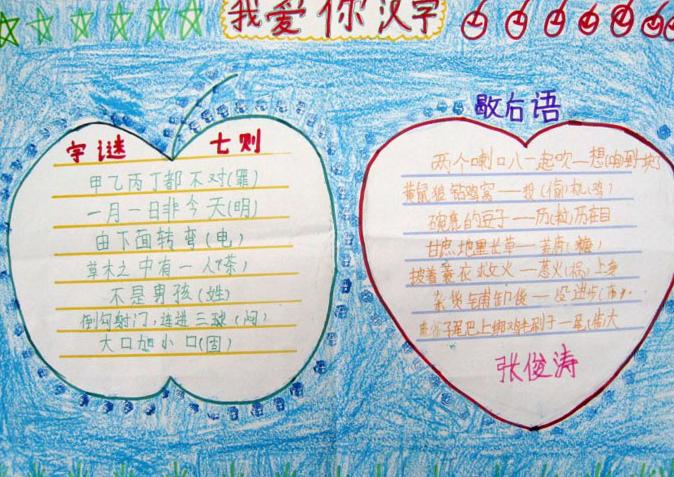 我爱你汉字
字谜 七则
甲乙丙丁都不对(罪)
一月一日非今天(明)
由下面转弯(电)
草木之中有一人(茶)
不是男孩(姓)
倒勾射门,连进三球(闷)
大口加小口(固)
歇后语
两个喇口八一起吹—想(响)到一块
黄鼠狼钻鸡窝——投(偷)机(鸡)
碗底的豆子——历(粒)历在目
甘庶地里长草——荒唐(糖)
披着蓑衣救火——惹火(祸)上身
杂货铺——没进步(布)
尾巴上绑刷子
张俊涛